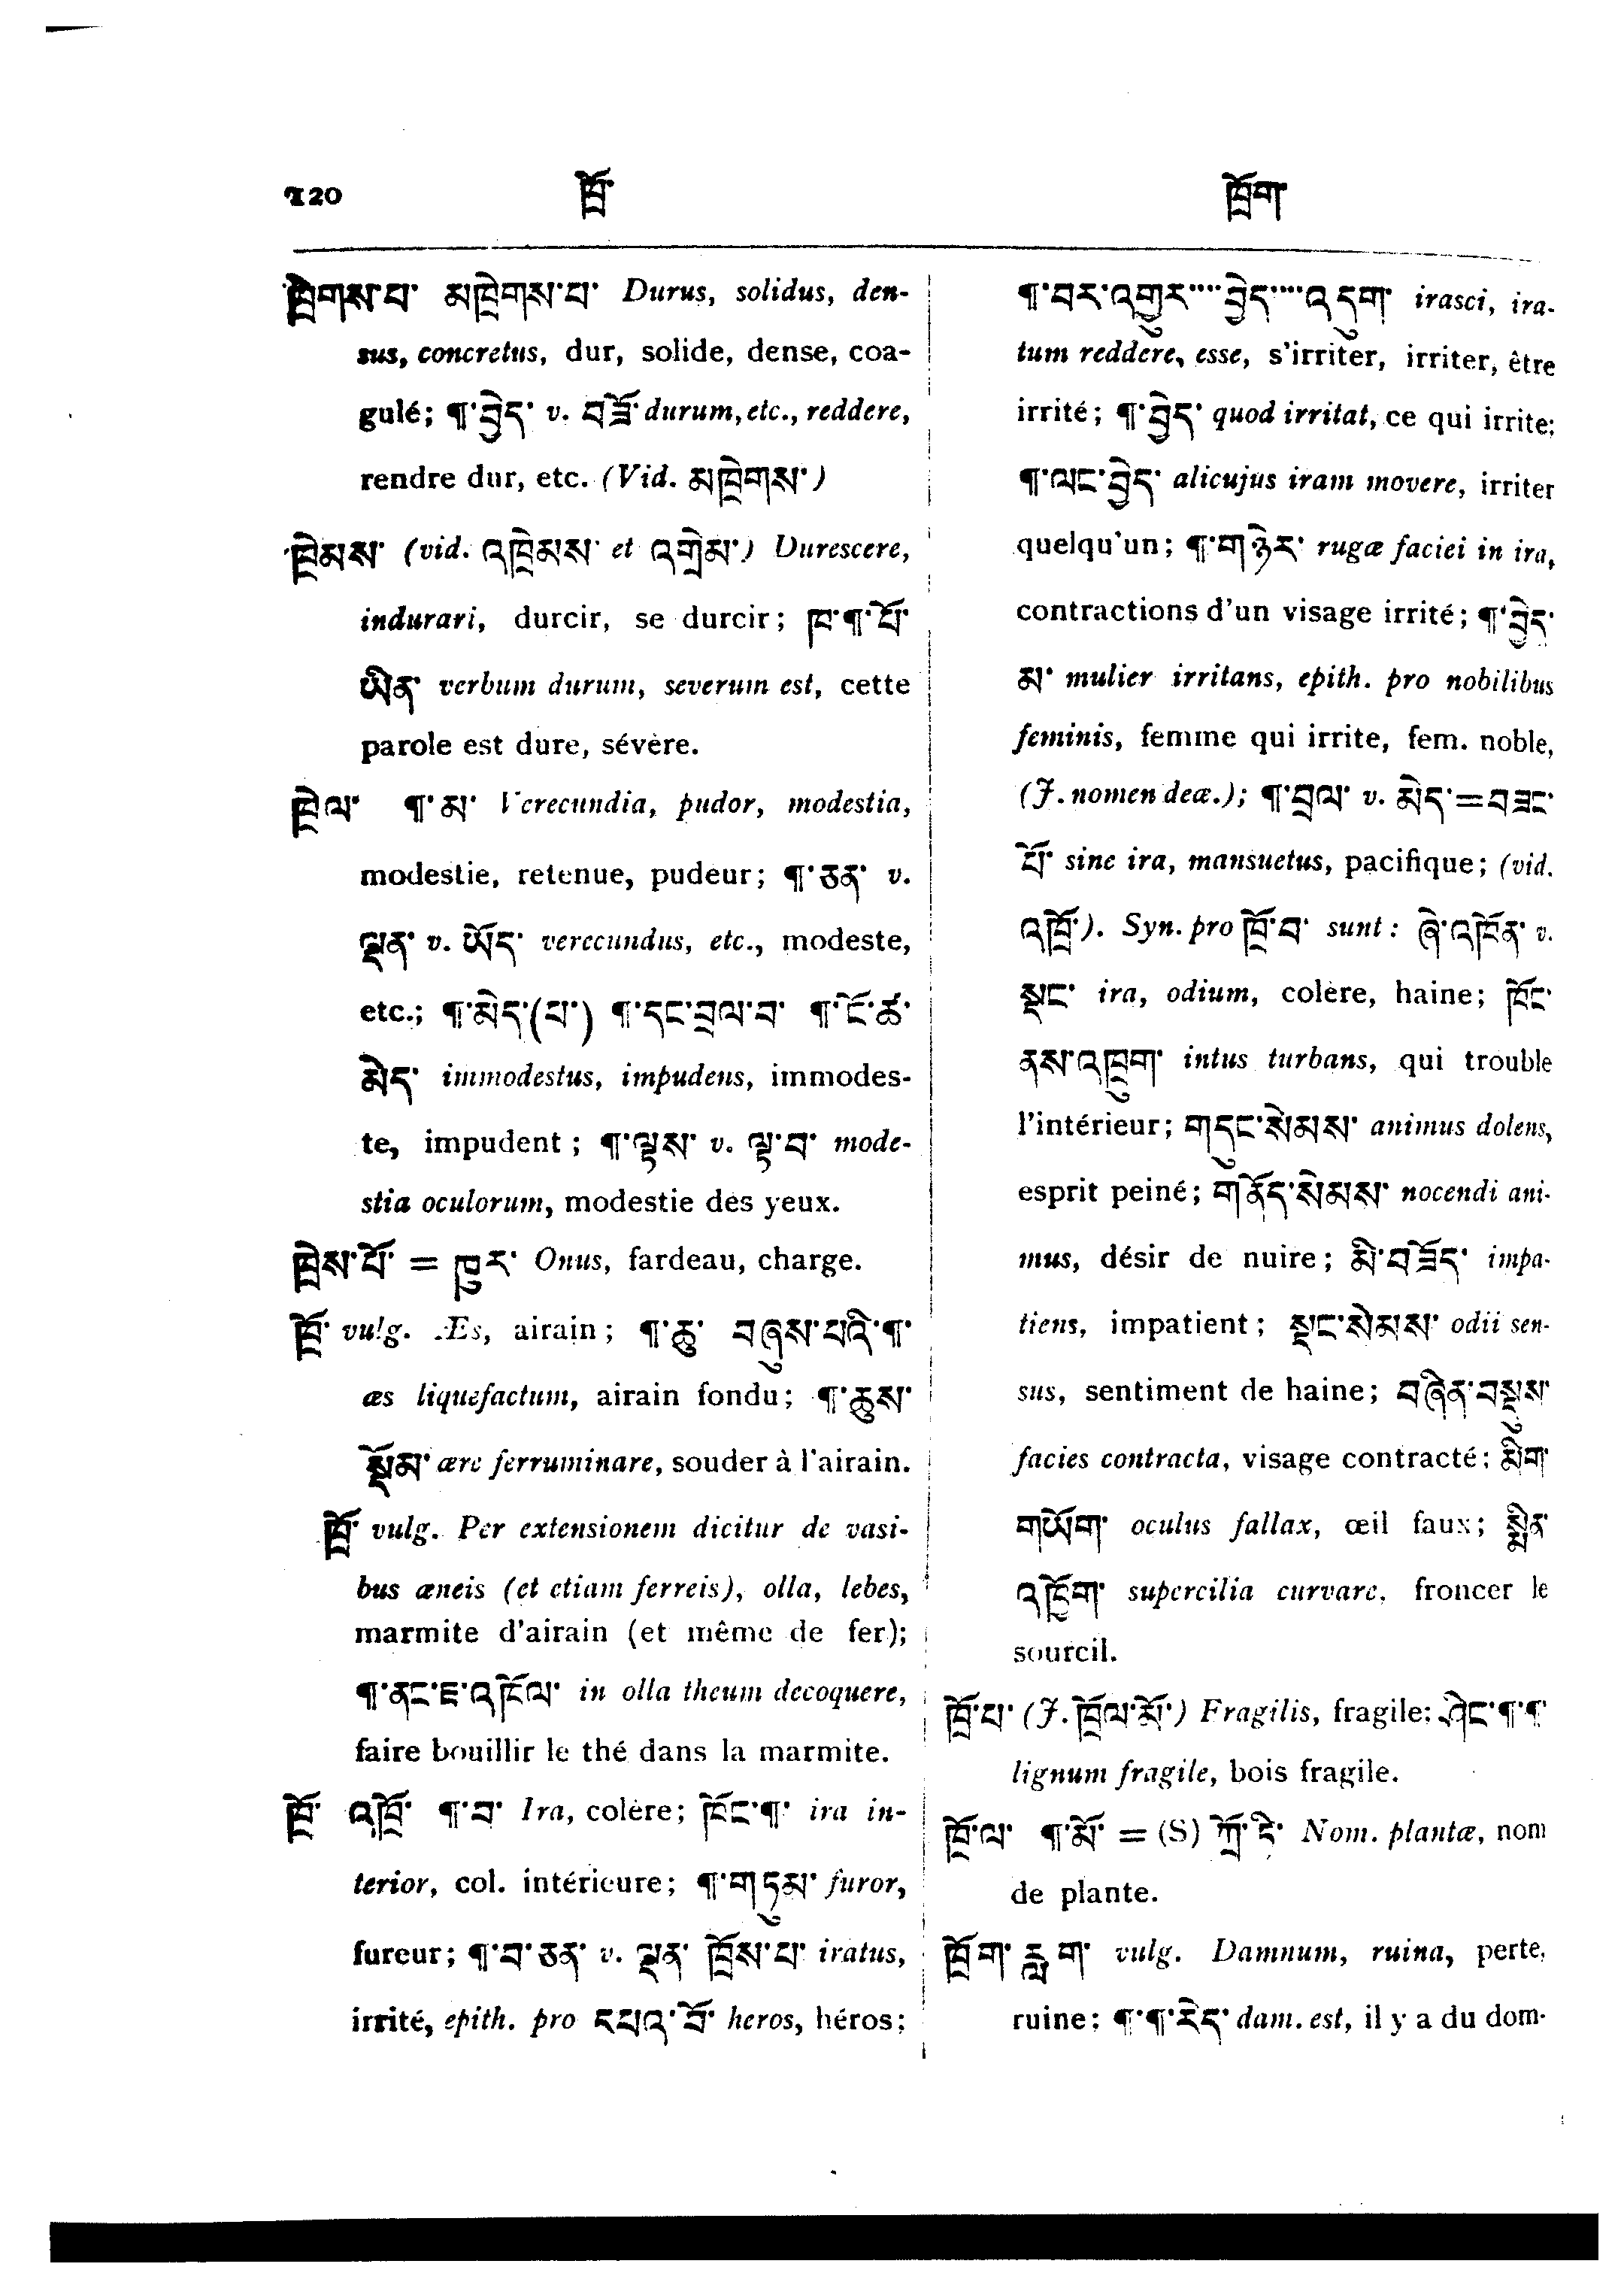 120 ཁྲོ་ ཁྲོག་
ཁྲེགས་པ་ མཁྲེགས་པ་ Durus, solidus, den-
sus, concretus, dur, solide, dense, coa-
gulé; ¶་བྱེད་ v. བཟོ་ durum, etc., reddere,
rendre dur, etc. (Vid. མཁྲེགས་)
ཁྲེམས་ (vid. འཁྲེམས་ et འགྲེམ་) Durescere,
indurari, durcir, se durcir; ཁ་¶་པོ་
ཡིན་ verbum durum, severum est, cette
parole est dure, sévère.
ཁྲེལ་ ¶་མ་ Verecundia, pudor, modestia,
modestie, retenue, pudeur; ¶་ཅན་ v.
ལྡན་ v. ཡོད་ verecundus, etc., modeste,
etc.; ¶་མེད་(པ་) ¶་དང་བྲལ་བ་ ¶་ངོ་ཚ་
མེད་ immodestus, impudens, immodes-
te, impudent; ¶་ལྟས་ v. ལྟ་བ་ mode-
stia oculorum, modestie des yeux.
ཁྲེས་པོ་ = ཁུར་ Onus, fardeau, charge.
ཁྲོ་ vulg. Æs, airain; ¶་ཆུ་ བཞུས་པའི་¶་
æs liquefactum, airain fondu; ¶་ཆུས་
སྡོམ་ ære ferruminare, souder à l'airain.
ཁྲོ་ vulg. Per extensionem dicitur de vasi-
bus æneis (et etiam ferreis), olla, lebes,
marmite d'airain (et même de fer);
¶་ནང་ཇ་འཁོལ་ in olla theum decoquere,
faire bouillir le thé dans la marmite.
ཁྲོ་ འཁྲོ་ ¶་བ་ Ira, colère; ཁོང་¶་ ira in-
terior, col. intérieure; ¶་གཏུམ་ furor,
fureur; ¶་བ་ཅན་ v. ལྡན་ ཁྲོས་པ་ iratus,
irrité, epith. pro དཔའ་བོ་ heros, héros;
¶་བར་འགྱུར་····བྱེད་····འདུག་ irasci, ira-
tum reddere, esse, s'irriter, irriter, être
irrité; ¶་བྱེད་ quod irritat, ce qui irrite;
¶་ལང་བྱེད་ alicujus iram movere, irriter
quelqu'un; ¶་གཉེར་ rugæ faciei in ira,
contractions d'un visage irrité; ¶་བྱེད་
མ་ mulier irritans, epith. pro nobilibus
feminis, femme qui irrite, fem. noble,
(J. nomen deæ.); ¶་བྲལ་ v. མེད་=བཟང་
པོ་ sine ira, mansuetus, pacifique; (vid.
འཁྲོ་). Syn. pro ཁྲོ་བ་ sunt: ཞེ་འཁོན་ v.
སྡང་ ira, odium, colère, haine; ཁོང་
ནས་འཁྲུག་ intus turbans, qui trouble
l'intérieur; གདུང་སེམས་ animus dolens,
esprit peiné; གནོད་སེམས་ nocendi ani-
mus, désir de nuire; མི་བཟོད་ impa-
tiens, impatient; སྡང་སེམས་ odii sen-
sus, sentiment de haine; བཞིན་བསྡུས་
facies contracta, visage contracté; མིག་
གཡོག་ oculus fallax, œil faux; སྨིན་
འཁྱོག་ supercilia curvare, froncer le
sourcil.
ཁྲོ་པ་ (J. ཁྲོལ་མོ་) Fragilis, fragile; ཤིང་¶་¶་
lignum fragile, bois fragile.
ཁྲོ་ལ་ ¶་མོ་ = (S) ཀྲོ་ཌི་ Nom. plantæ, nom
de plante.
ཁྲོག་རླག་ vulg. Damnum, ruina, perte,
ruine; ¶་¶་རེད་ dam. est, il y a du dom-